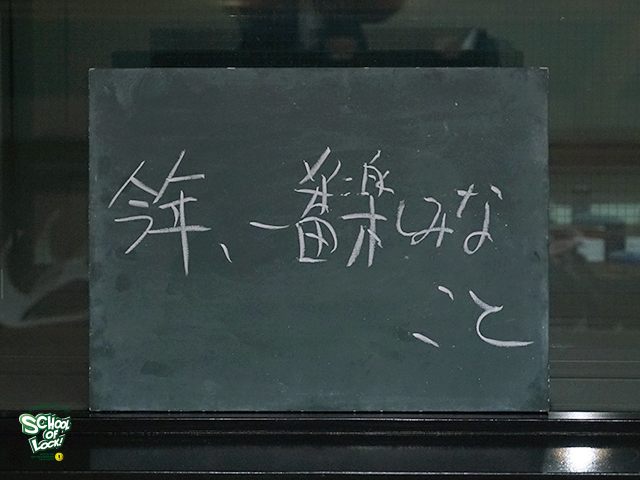 今年、一番楽しみな
こと
SCHOOL
OF
LOCK!